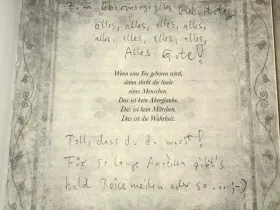 Zum übermorgigen Geburtstag
alles, alles, alles, alles,
alles, alles, alles, alles,
Alles Gute!
Wenn eine Fee geboren wird,
dann stirbt die Seele
eines Menschen.
Das ist kein Aberglaube.
Das ist kein Märchen.
Das ist die Wahrheit.
Toll, dass du da warst!
Für so lange Anreisen gibt's
bald Reisemeilen oder so...;-)